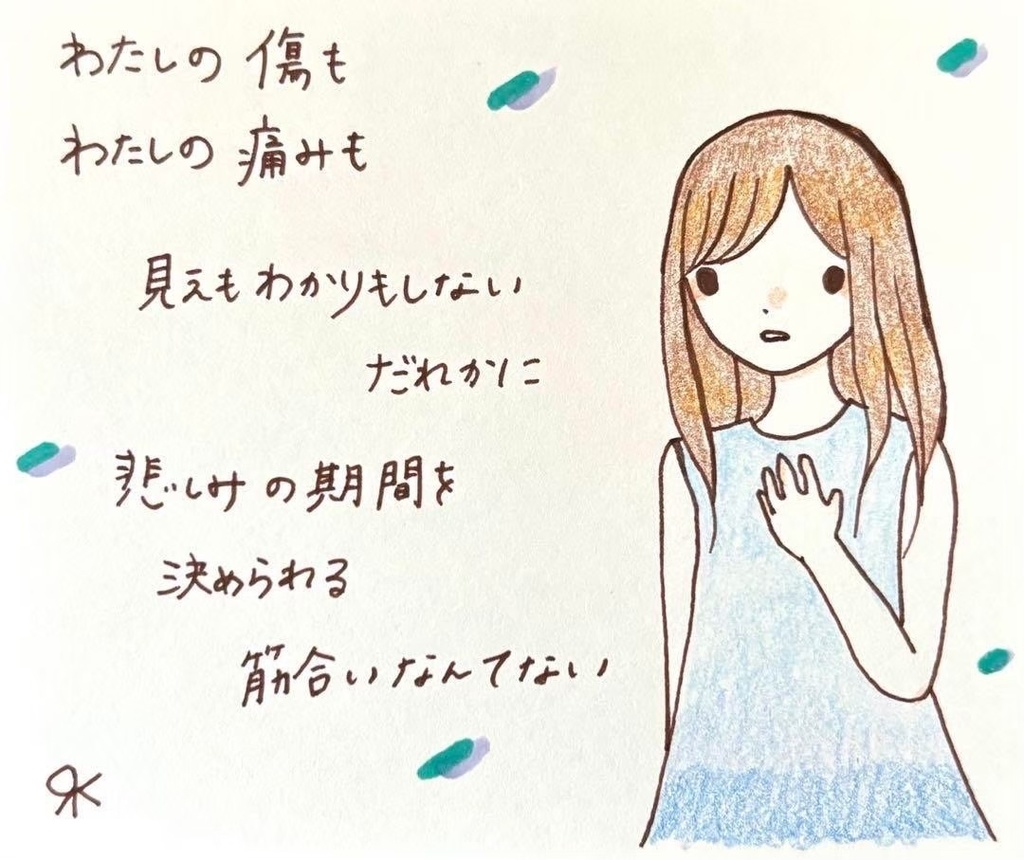 わたしの 傷も
わたしの 痛みも
見えもわかりもしない
だれかに
悲しみの期間を
決められる
筋合いなんてない